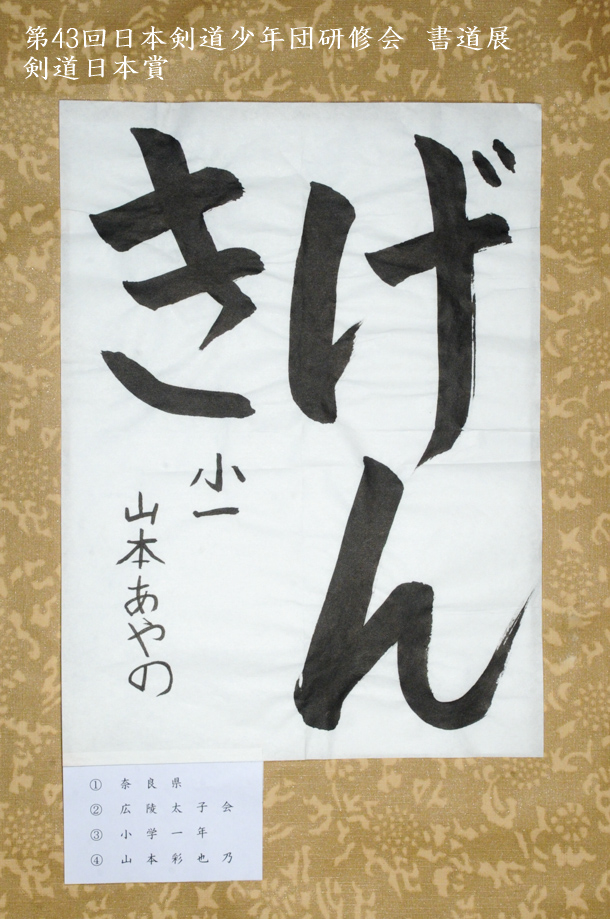 第43回日本剣道少年団研修会 書道展
剣道日本賞
げん
き
小一
山本あやの
① 奈良県
② 広陵太子会
③ 小学一年
④ 山本彩也乃